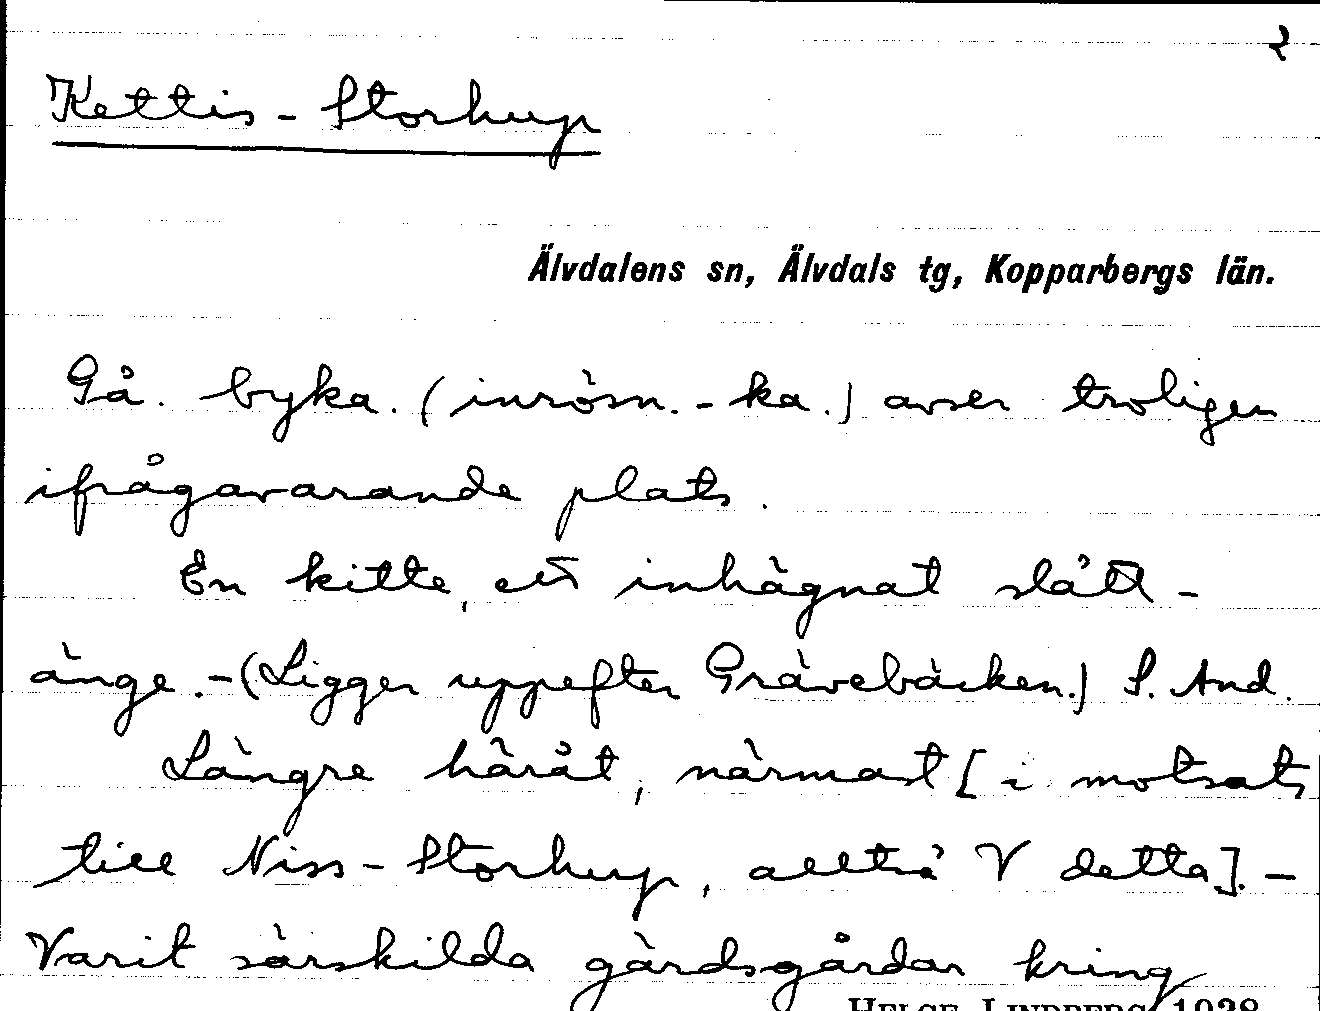 2
Kettis - Storhup
Älvdalens sn, Älvdals tg, Kopparbergs län.
Gå. byka. (inrösn. - ka.) avser troligen
ifrågavarande plats.
En kitte, ett inhägnat slått-
änge. - (Ligger uppefter Grävebäcken.) S. And.
Längre häråt, närmast [i motsats
till Niss - Storhup, alltså V detta]. -
Varit särskilda gärdsgårdar kring
HELGE LINDBERG 1938